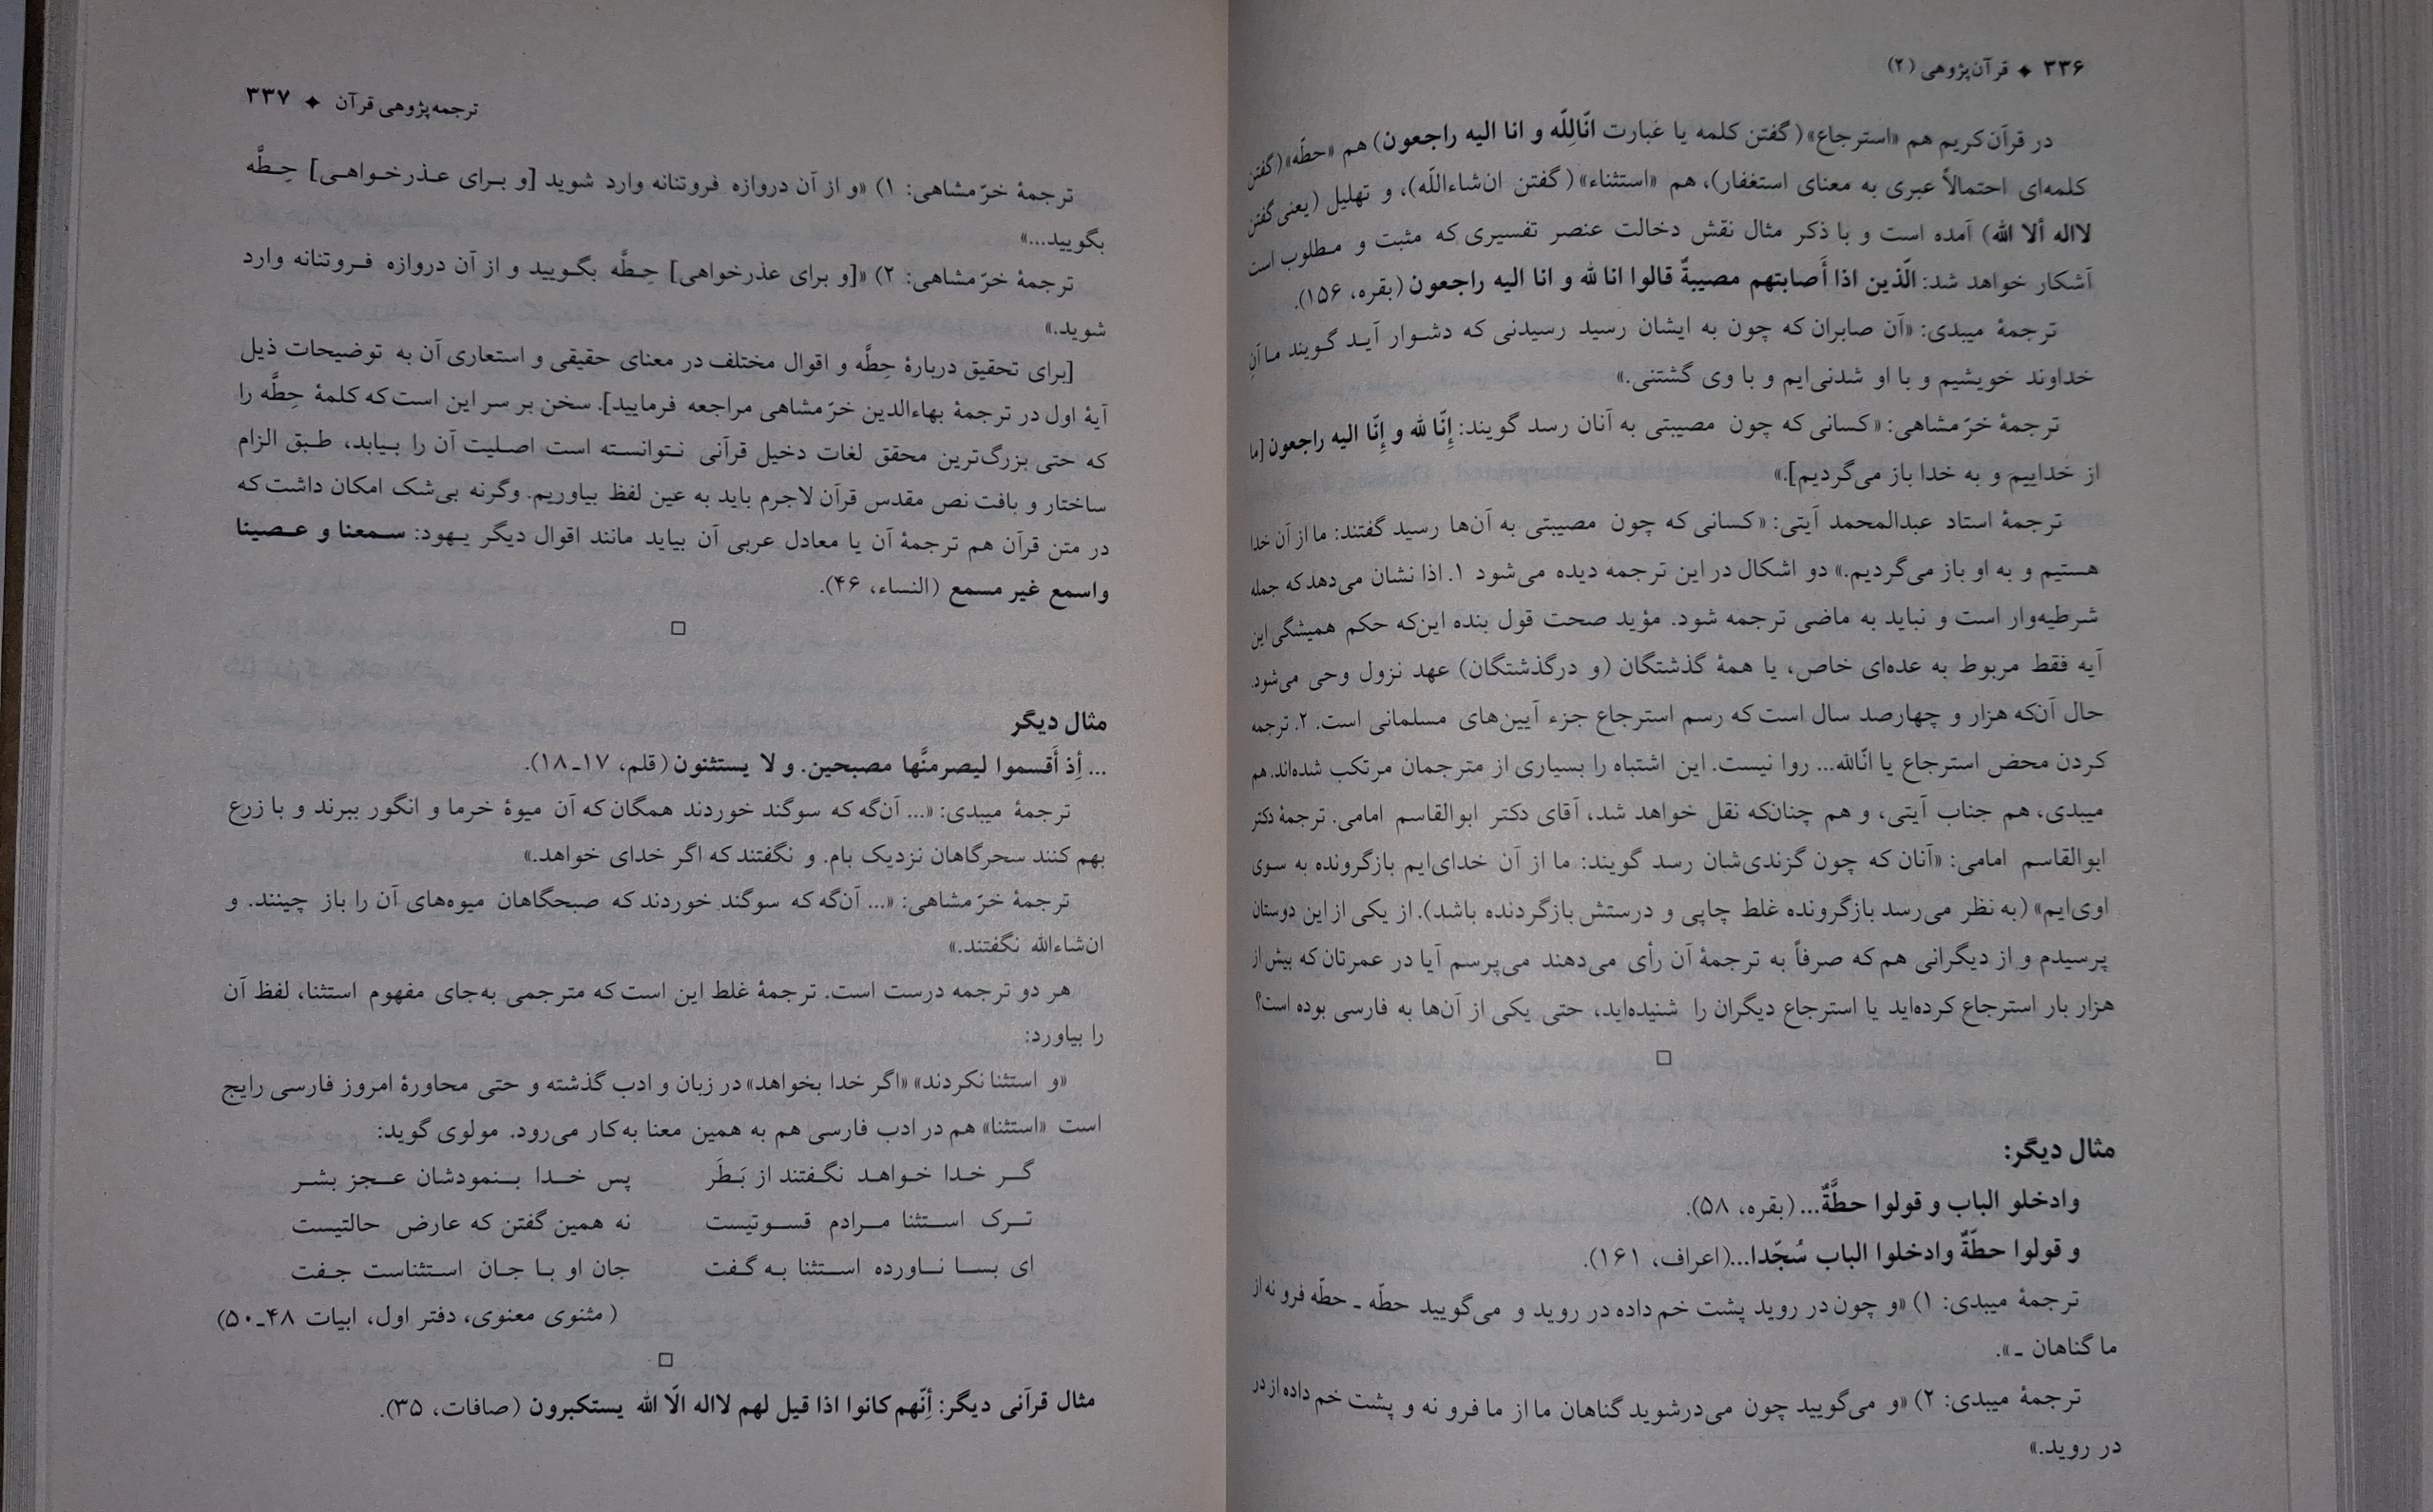 ۳۳۶ ✦ قرآن‌پژوهی (۲)
در قرآن‌کریم هم «استرجاع» (گفتن کلمه یا عبارت انّاللّه و انا الیه راجعون) هم «حطّه» (گفتن
کلمه‌ای احتمالاً عبری به معنای استغفار)، هم «استثناء» (گفتن ان‌شاءاللّه)، و تهلیل (یعنی گفتن
لااله ألا الله) آمده است و با ذکر مثال نقش دخالت عنصر تفسیری که مثبت و مطلوب است
آشکار خواهد شد: الّذین اذا أَصابتهم مصیبةٌ قالوا انا لله و انا الیه راجعون (بقره، ۱۵۶).
ترجمهٔ میبدی: «آن صابران که چون به ایشان رسید رسیدنی که دشوار آید گویند ما آنِ
خداوند خویشیم و با او شدنی‌ایم و با وی گشتنی.»
ترجمهٔ خرّمشاهی: «کسانی که چون مصیبتی به آنان رسد گویند: إنّا لله و إنّا الیه راجعون [ما
از خداییم و به خدا باز می‌گردیم].»
ترجمهٔ استاد عبدالمحمد آیتی: «کسانی که چون مصیبتی به آن‌ها رسید گفتند: ما از آن خدا
هستیم و به او باز می‌گردیم.» دو اشکال در این ترجمه دیده می‌شود ۱. اذا نشان می‌دهد که جمله
شرطیه‌وار است و نباید به ماضی ترجمه شود. مؤید صحت قول بنده این‌که حکم همیشگی این
آیه فقط مربوط به عده‌ای خاص، یا همهٔ گذشتگان (و درگذشتگان) عهد نزول وحی می‌شود.
حال آن‌که هزار و چهارصد سال است که رسم استرجاع جزء آیین‌های مسلمانی است. ۲. ترجمه
کردن محض استرجاع یا انّالله... روا نیست. این اشتباه را بسیاری از مترجمان مرتکب شده‌اند. هم
میبدی، هم جناب آیتی، و هم چنان‌که نقل خواهد شد، آقای دکتر ابوالقاسم امامی. ترجمهٔ دکتر
ابوالقاسم امامی: «آنان که چون گزندی‌شان رسد گویند: ما از آن خدای‌ایم بازگرونده به سوی
اوی‌ایم» (به نظر می‌رسد بازگرونده غلط چاپی و درستش بازگردنده باشد). از یکی از این دوستان
پرسیدم و از دیگرانی هم که صرفاً به ترجمهٔ آن رأی می‌دهند می‌پرسم آیا در عمرتان که بیش از
هزار بار استرجاع کرده‌اید یا استرجاع دیگران را شنیده‌اید، حتی یکی از آن‌ها به فارسی بوده است؟
□
مثال دیگر:
وادخلو الباب و قولوا حطَّةٌ... (بقره، ۵۸).
و قولوا حطّةٌ وادخلوا الباب سُجّدا...(اعراف، ۱۶۱).
ترجمهٔ میبدی: ۱) «و چون در روید پشت خم داده در روید و می‌گویید حطّه ـ حطّه فرو نه از
ما گناهان ـ».
ترجمهٔ میبدی: ۲) «و می‌گویید چون می‌درشوید گناهان ما از ما فرو نه و پشت خم داده از در
در روید.»
ترجمه‌پژوهی قرآن ✦ ۳۳۷
ترجمهٔ خرّمشاهی: ۱) «و از آن دروازه فروتنانه وارد شوید [و برای عذرخواهی] حِطَّه
بگویید...»
ترجمهٔ خرّمشاهی: ۲) «[و برای عذرخواهی] حِطَّه بگویید و از آن دروازه فروتنانه وارد
شوید.»
[برای تحقیق دربارهٔ حِطَّه و اقوال مختلف در معنای حقیقی و استعاری آن به توضیحات ذیل
آیهٔ اول در ترجمهٔ بهاءالدین خرّمشاهی مراجعه فرمایید]. سخن بر سر این است که کلمهٔ حِطَّه را
که حتی بزرگ‌ترین محقق لغات دخیل قرآنی نتوانسته است اصلیت آن را بیابد، طبق الزام
ساختار و بافت نص مقدس قرآن لاجرم باید به عین لفظ بیاوریم. وگرنه بی‌شک امکان داشت که
در متن قرآن هم ترجمهٔ آن یا معادل عربی آن بیاید مانند اقوال دیگر یهود: سمعنا و عصینا
واسمع غیر مسمع (النساء، ۴۶).
□
مثال دیگر
... أِذ أَقسموا لیصرمنَّها مصبحین. و لا یستثنون (قلم، ۱۷ـ۱۸).
ترجمهٔ میبدی: «... آن‌گه که سوگند خوردند همگان که آن میوهٔ خرما و انگور ببرند و با زرع
بهم کنند سحرگاهان نزدیک بام. و نگفتند که اگر خدای خواهد.»
ترجمهٔ خرّمشاهی: «... آن‌گه که سوگند خوردند که صبحگاهان میوه‌های آن را باز چینند. و
ان‌شاءالله نگفتند.»
هر دو ترجمه درست است. ترجمهٔ غلط این است که مترجمی به‌جای مفهوم استثنا، لفظ آن
را بیاورد:
«و استثنا نکردند» «اگر خدا بخواهد» در زبان و ادب گذشته و حتی محاورهٔ امروز فارسی رایج
است «استثنا» هم در ادب فارسی هم به همین معنا به‌کار می‌رود. مولوی گوید:
گر خدا خواهد نگفتند از بَطَر پس خدا بنمودشان عجز بشر
ترک استثنا مرادم قسوتیست نه همین گفتن که عارض حالتیست
ای بسا ناورده استثنا به گفت جان او با جان استثناست جفت
(مثنوی معنوی، دفتر اول، ابیات ۴۸ـ۵۰)
□
مثال قرآنی دیگر: أِنّهم کانوا اذا قیل لهم لااله الّا الله یستکبرون (صافات، ۳۵).